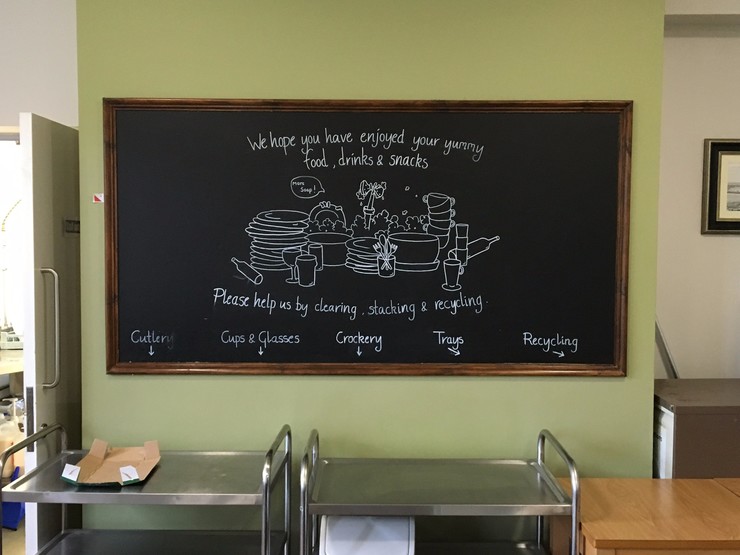 We hope you have enjoyed your yummy
food, drinks & snacks
More
Soap!
Please help us by clearing, stacking & recycling.
Cutlery Cups & Glasses Crockery Trays Recycling